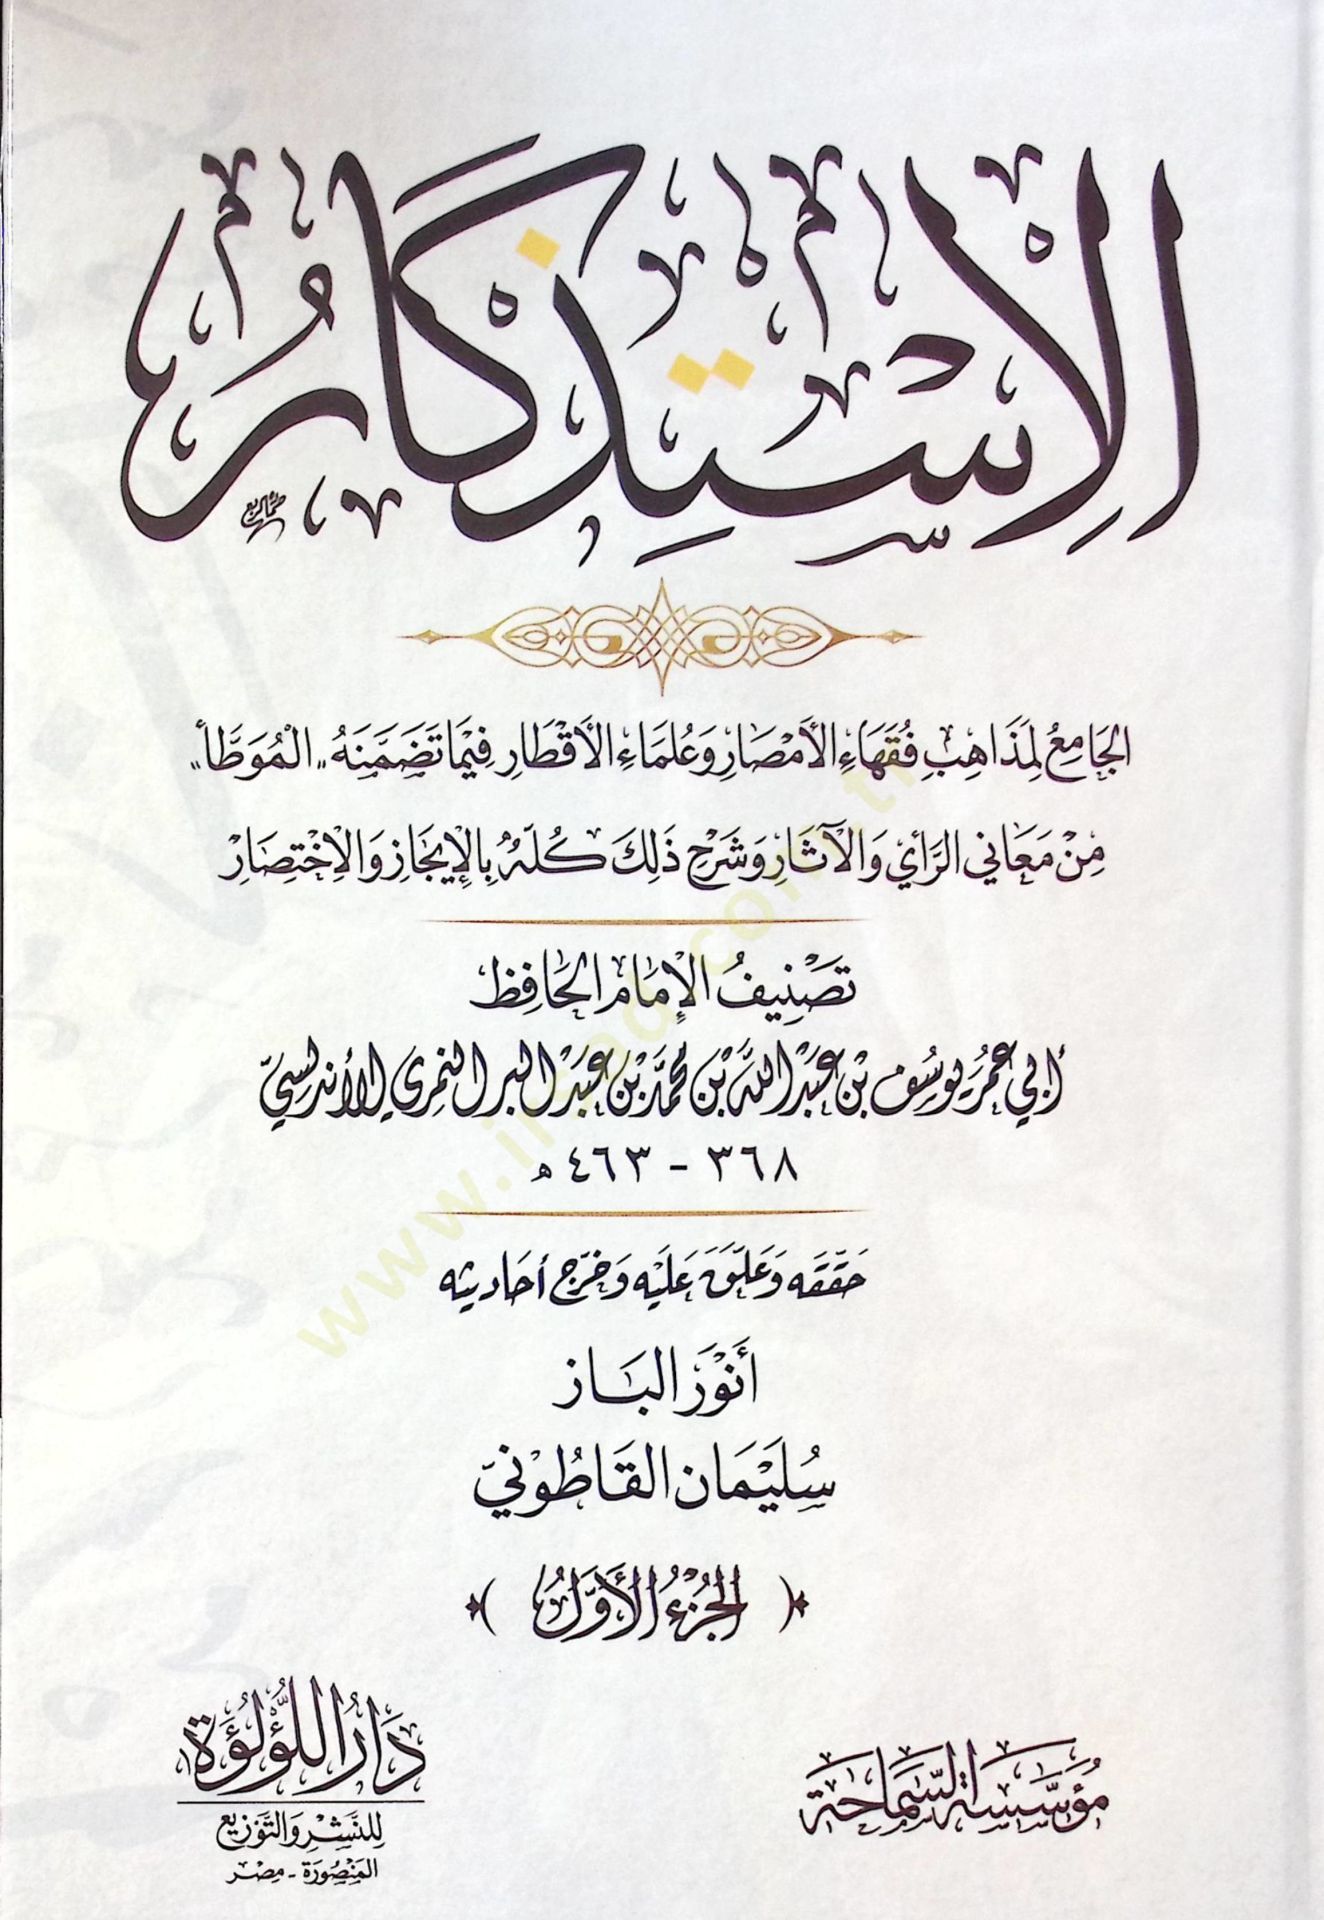 الِاسْتِذْكَارُ
الجَامِعُ لِمَذَاهِبِ فُقَهَاءِ الأَمْصَارِ وَعُلَمَاءِ الأَقْطَارِ فِيمَا تَضَمَّنَهُ "المُوَطَّأ"
مِنْ مَعَانِي الرَّأيِ وَالآثَارِ وَشَرْحِ ذَلِكَ كُلِّهِ بِالإِيجَازِ وَالِاخْتِصَارْ
تَصْنِيفُ الإِمَامِ الحَافِظِ
أبي عمر يوسف بن عبد الله بن محمد بن عبد البر النمري الأندلسي
٣٦٨ - ٤٦٣ هـ
حَقَّقَه وَعَلَّقَ عَلَيْه وَخَرَّج أحَاديثه
أَنْوَر البَاز
سُلَيْمَان القَاطُونيّ
﴿ الجُزْءُ الأَوَّلُ ﴾
مُؤَسَّسَة السَّمَاحَة
دَارُ اللُّؤْلُؤَةِ
لِلنَّشْرِ وَالتَّوْزِيع
المَنْصُورَة - مِصْر
www.irsad.com.tr